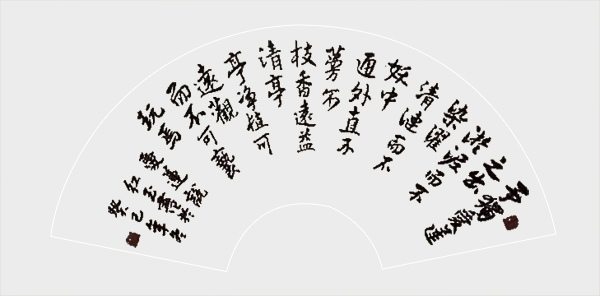 予獨愛蓮
之出
淤泥而不
染濯
清漣而不
妖中
通外直不
蔓不
枝香遠益
清亭
亭淨植可
遠觀
而不可褻
玩焉
愛蓮說
癸巳年冬